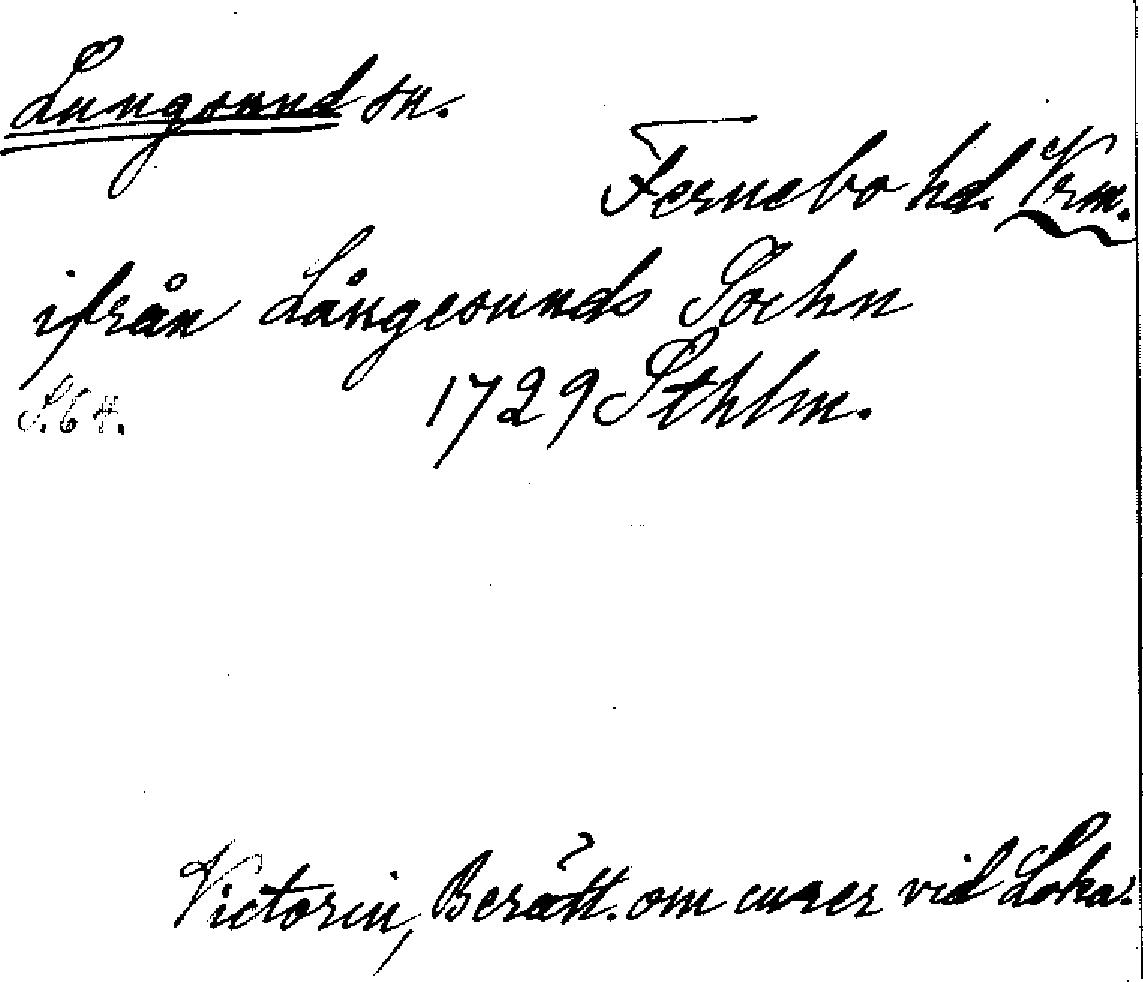 Lungsund sn.
Fernebo hd. Vrm.
ifrån Långesunds Sochn
S. 64. 1729 Sthlm.
Victorin, Berätt. om curer vid Loka.